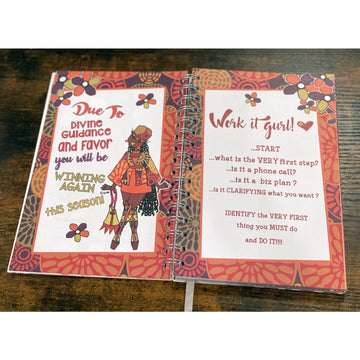 Due To
DIVINE
GUIDANCE
AND FAVOR
you will be
WINNING
AGAIN
this season!
Work it gurl!
...START
...what is the VERY first step?
...Is it a phone call?
...Is it a biz plan ?
...Is it CLARIFYING what you want ?
IDENTIFY the VERY FIRST
thing you MUST do
and DO IT!!!!